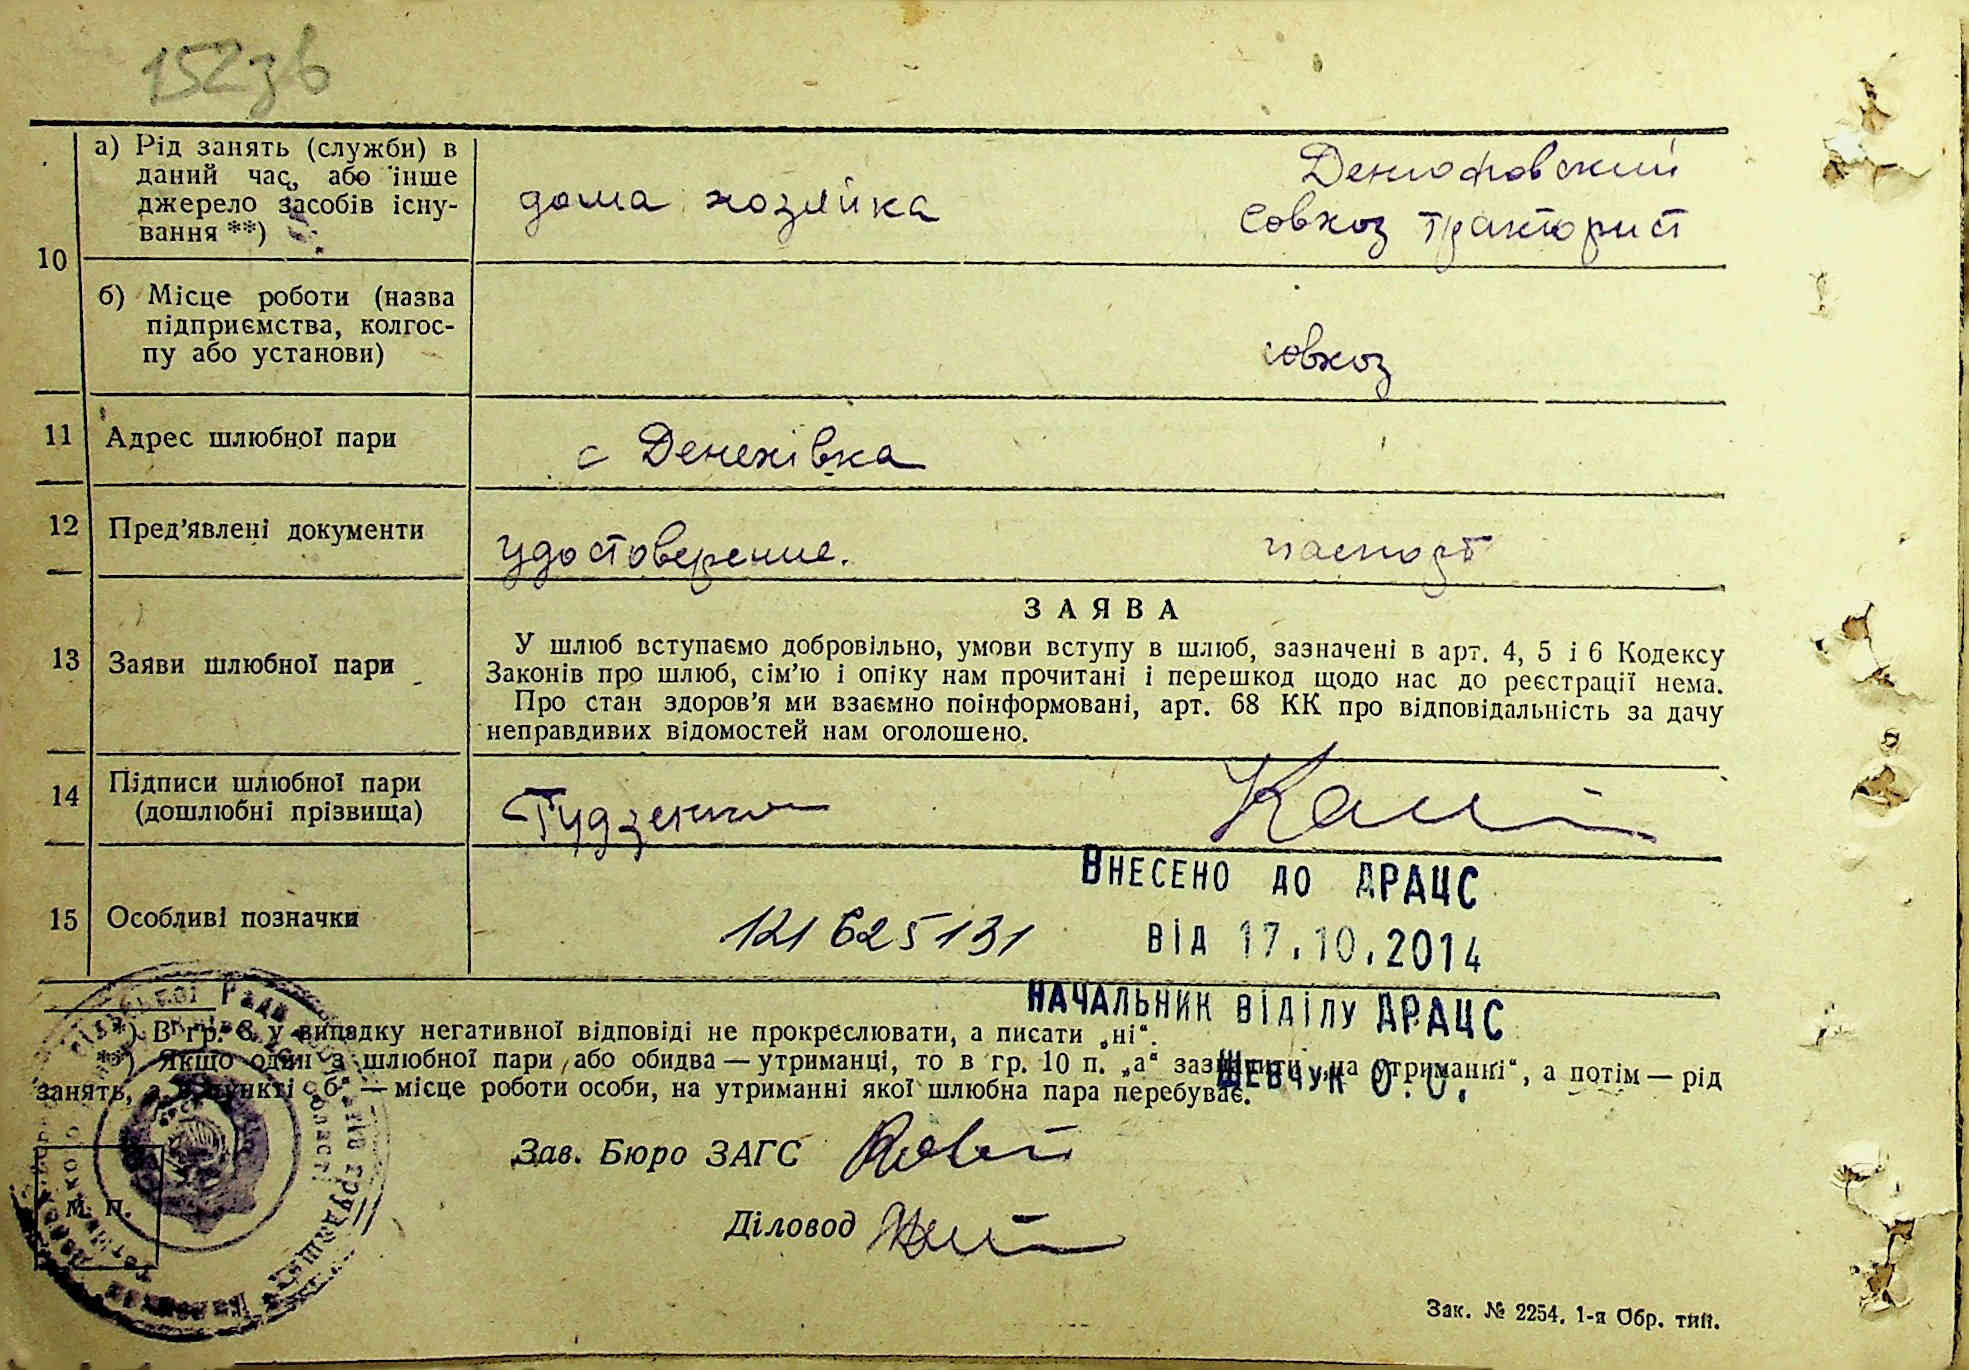 152зв
а) Рід занять (служби) в
даний час, або інше
джерело засобів існу-
вання **)
дома хозяйка
совхоз тракторист
10
б) Місце роботи (назва
підприємства, колгос-
пу або установи)
совхоз
11 Адрес шлюбної пари
с Денехівка
12 Пред’явлені документи
удостоверение. паспорт
ЗАЯВА
13 Заяви шлюбної пари
У шлюб вступаємо добровільно, умови вступу в шлюб, зазначені в арт. 4, 5 і 6 Кодексу
Законів про шлюб, сім’ю і опіку нам прочитані і перешкод щодо нас до реєстрації нема.
Про стан здоров’я ми взаємно поінформовані, арт. 68 КК про відповідальність за дачу
неправдивих відомостей нам оголошено.
14 Підписи шлюбної пари
(дошлюбні прізвища)
Гудзенко
Внесено до ДРАЦС
15 Особливі позначки
121625131
від 17.10.2014
НАЧАЛЬНИК ВІДІЛУ ДРАЦС
*) В гр. 8 у випадку негативної відповіді не прокреслювати, а писати „ні“.
**) Якщо один з шлюбної пари або обидва — утриманці, то в гр. 10 п. „а“ зазначити „на утриманні“, а потім — рід
Шевчук О.О.
занять, а в пункті „б“ — місце роботи особи, на утриманні якої шлюбна пара перебуває.
Зав. Бюро ЗАГС
М. П.
Діловод
Зак. № 2254. 1-я Обр. тип.